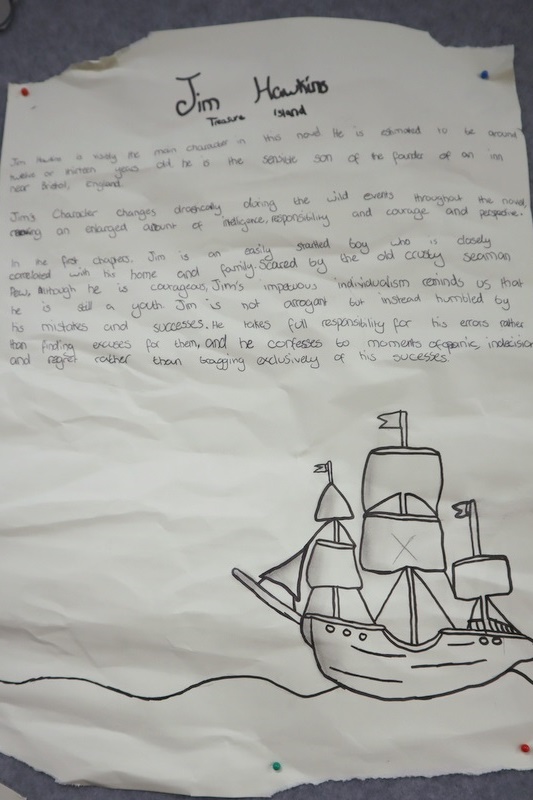 Jim Hawkins
Treasure Island
Jim Hawkins is rossibly the main character in this novel. He is estimated to be around
twelve or thirteen years old, he is the sensible son of the founder of an inn
near Bristol, England.
Jim's Character changes drastically during the wild events throughout the novel,
an enlarged amount of intelligence, responsibility and courage and perspective.
In the first chapters, Jim is an easily startled boy who is closely
correlated with his home and family. Scared by the old crusty seaman
Pew, Although he is courageous, Jim's impetuous individualism reminds us that
he is still a youth. Jim is not arrogant but instead humbled by
his mistakes and successes. He takes full responsibility for his errors rather
than finding excuses for them, and he confesses to moments of panic, indecision
and regret rather than bragging exclusively of his sucesses.